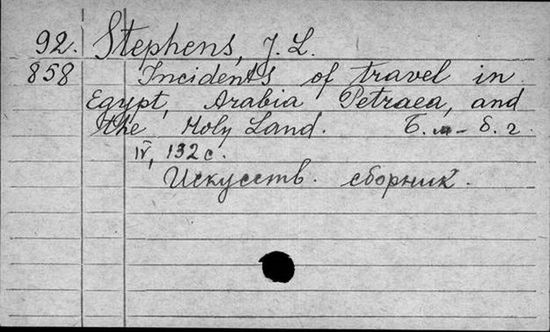 92. Stephens, J. L.
858 Incidents of travel in
Egypt, Arabia Petraea, and
the Holy Land. Б. м. - б. г.
IV, 132 с.
Искусств. сборник.